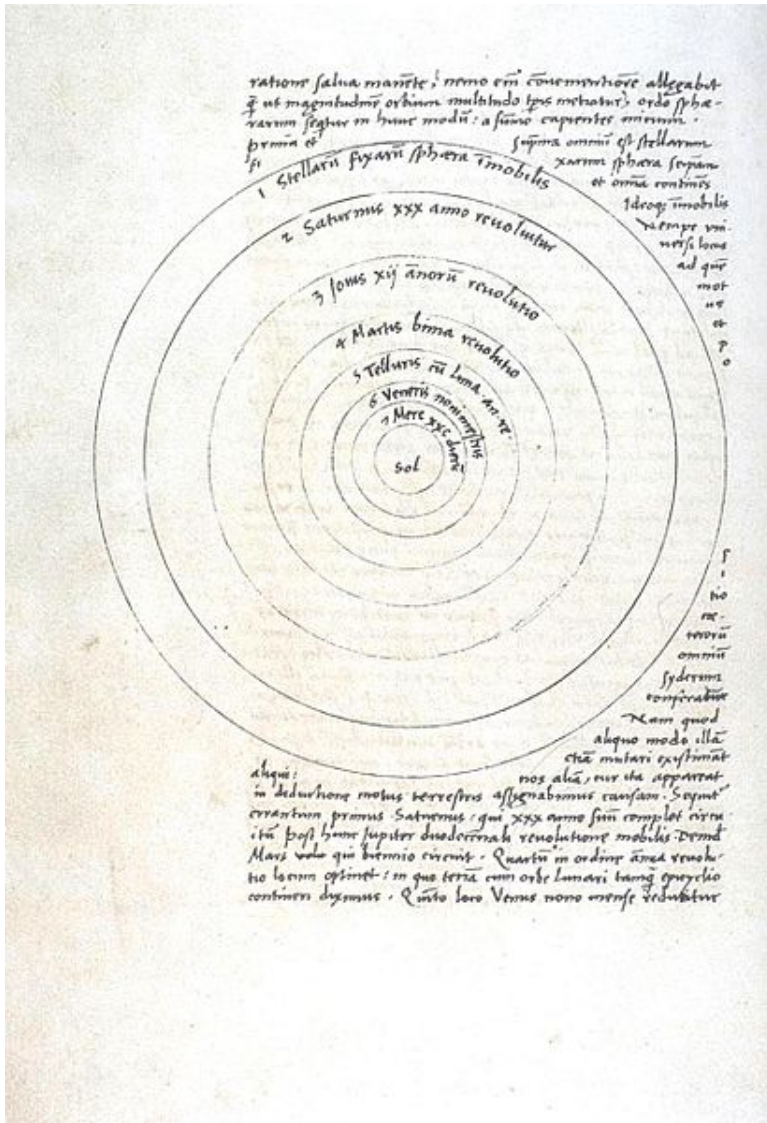 ratione salva manēte, nemo em̄ cōvenientiorē allegabit
q̄ ut magnitudinē orbium multitudo tp̄is metiatur, ordo sphæ-
rarum seqtur in hunc modū: a sūmo capientes initium.
prima et sūprema omniū est stellarum
fixarum sphæra seipam
et omīa continēs
Ideoqȝ īmobilis
Nempe uni-
versi locus
ad quē
mot
us
et
p
o
1 Stellarū fixarū sphæra īmobilis
2 Saturnus xxx anno revolvitur
3 Jovis xij ānorū revolutio
4 Martis bima revolutio
5 Telluris cū luna an. re.
6 Veneris nonimestris
7 Merc xxc dierū
Sol
s
i
tio
cæ-
terorū
omniū
syderum
conferatur
Nam quod
aliquo modo illā
etiā mutari existimāt
aliqui: nos aliā, cur ita appareat
in deductione motus terrestris assignabimus causam. Sequit̄
errantium primus Saturnus: qui xxx anno suū complet circu
itū post hunc Jupiter duodecennali revolutione mobilis. Deind
Mars qui biennio circuit. Quartū in ordine ānua revolu-
tio locum optinet: in quo terrā cum orbe lunari tamq̄ epicyclio
contineri diximus. Quīto loco Venus nono mense reducitur